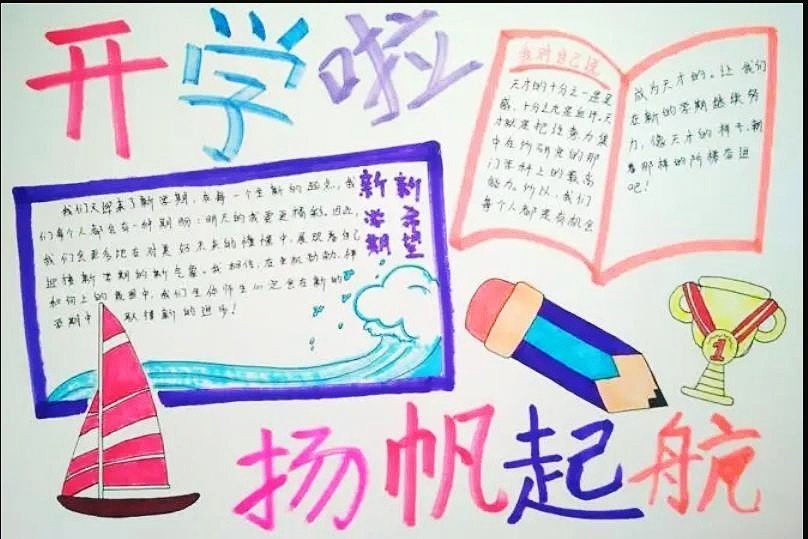 开学啦
新学期
新希望
我们又迎来了新学期，在每一个全新的起点，我
们每个人都会有一种期盼：明天的我要更精彩。因此，
我们会更多地在对美好未来的憧憬中，展现着自己
迎接新学期的新气象。我相信，在
和向上的氛围中，我们全体师生必定会在新的
学期中 新的进步！
我对自己说
天才的十分之一是灵
感，十分之九是血汗。天
才就是把注意力集
中在所研究的那
门学科上的最高
能力。所以，我们
每个人都是有机会
成为天才的。让我们
在新的学期继续努
力，像天才的样子，朝
着那样的阶梯奋进
吧！
1
扬帆起航